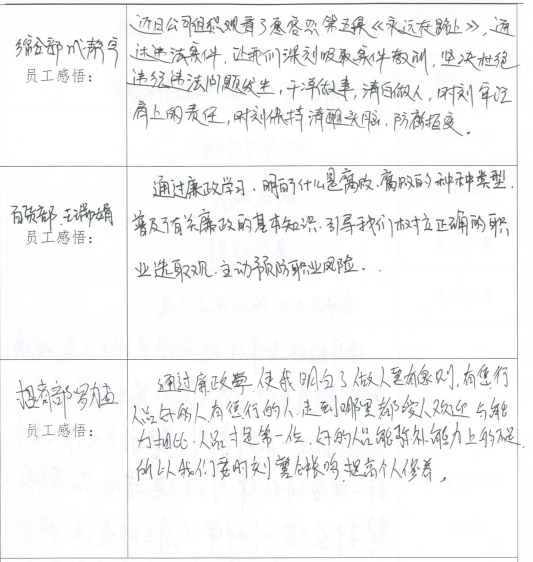 综合部 代静亭
员工感悟：
近日公司组织观看了 第五集《永远在路上》，通
过违法案件，让我们深刻吸取案件教训，坚决杜绝
违纪违法问题发生，干净做事，清白做人，时刻牢记
肩上的责任，时刻保持清醒头脑，防腐拒变。
百货部 王瑞娟
员工感悟：
通过廉政学习，明白了什么是腐败，腐败的种种类型，
普及了有关廉政的基本知识，引导我们树立正确的职
业选取观，主动预防职业风险．．
招商部
员工感悟：
通过廉政学 使我明白了做人要有原则，有德行
人品好的人，有德行的人，走到哪里都受人欢迎 与能
力相比，人品才是第一位，好的人品能弥补能力上的不足，
所以我们要时刻警钟长鸣，提高个人修养。